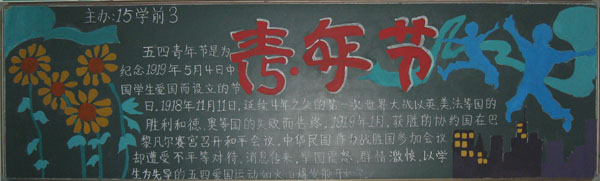 主办:15学前3
青年节
五四青年节是为
纪念1919年5月4日中
国学生爱国而设立的节
日,1918年11月11日,延续4年之久的第一次世界大战以英、美、法等国的
胜利和德、奥等国的失败而告终。1919年1月,获胜的协约国在巴
黎凡尔赛宫召开和平会议。中华民国作为战胜国参加会议
却遭受不平等对待,消息传来,举国震怒,群情激愤,以学
生为先导的五四爱国运动如火山爆发